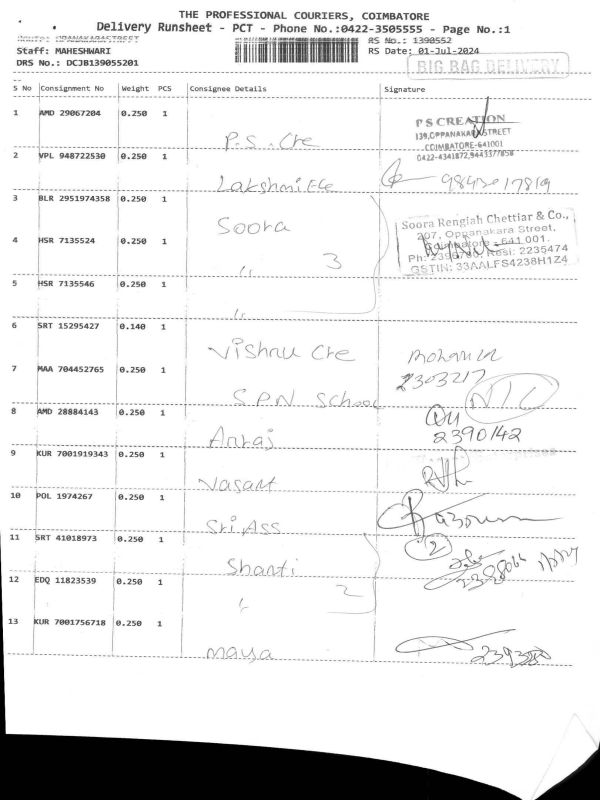 THE PROFESSIONAL COURIERS, COIMBATORE
Delivery Runsheet - PCT - Phone No.:0422-3505555 - Page No.:1
Route: OPANAKARASTREET
RS No.: 1390552
Staff: MAHESHWARI
RS Date: 01-Jul-2024
DRS No.: DCJB139055201
BIG BAG DELIVERY
S No Consignment No Weight PCS Consignee Details Signature
1 AMD 29067204 0.250 1
P.S. Cre
P S CREATION
139, OPPANAKARA STREET
COIMBATORE-641001
0422-4341872, 9443377858
2 VPL 948722530 0.250 1
Lakshmi Ele
3 BLR 2951974358 0.250 1
Soora
Soora Rengiah Chettiar & Co.,
207, Oppanakara Street,
Coimbatore - 641 001.
Resi: 2235474
GSTIN: 33AALFS4238H1Z4
4 HSR 7135524 0.250 1
" 3
5 HSR 7135546 0.250 1
"
6 SRT 15295427 0.140 1
Vishnu Cre
7 MAA 704452765 0.250 1
2303217
SPN School
8 AMD 28884143 0.250 1
2390142
9 KUR 7001919343 0.250 1
Vasant
10 POL 1974267 0.250 1
Sri Ass
11 SRT 41018973 0.250 1
2
Shanti
12 EDQ 11823539 0.250 1
" 2
13 KUR 7001756718 0.250 1
maya